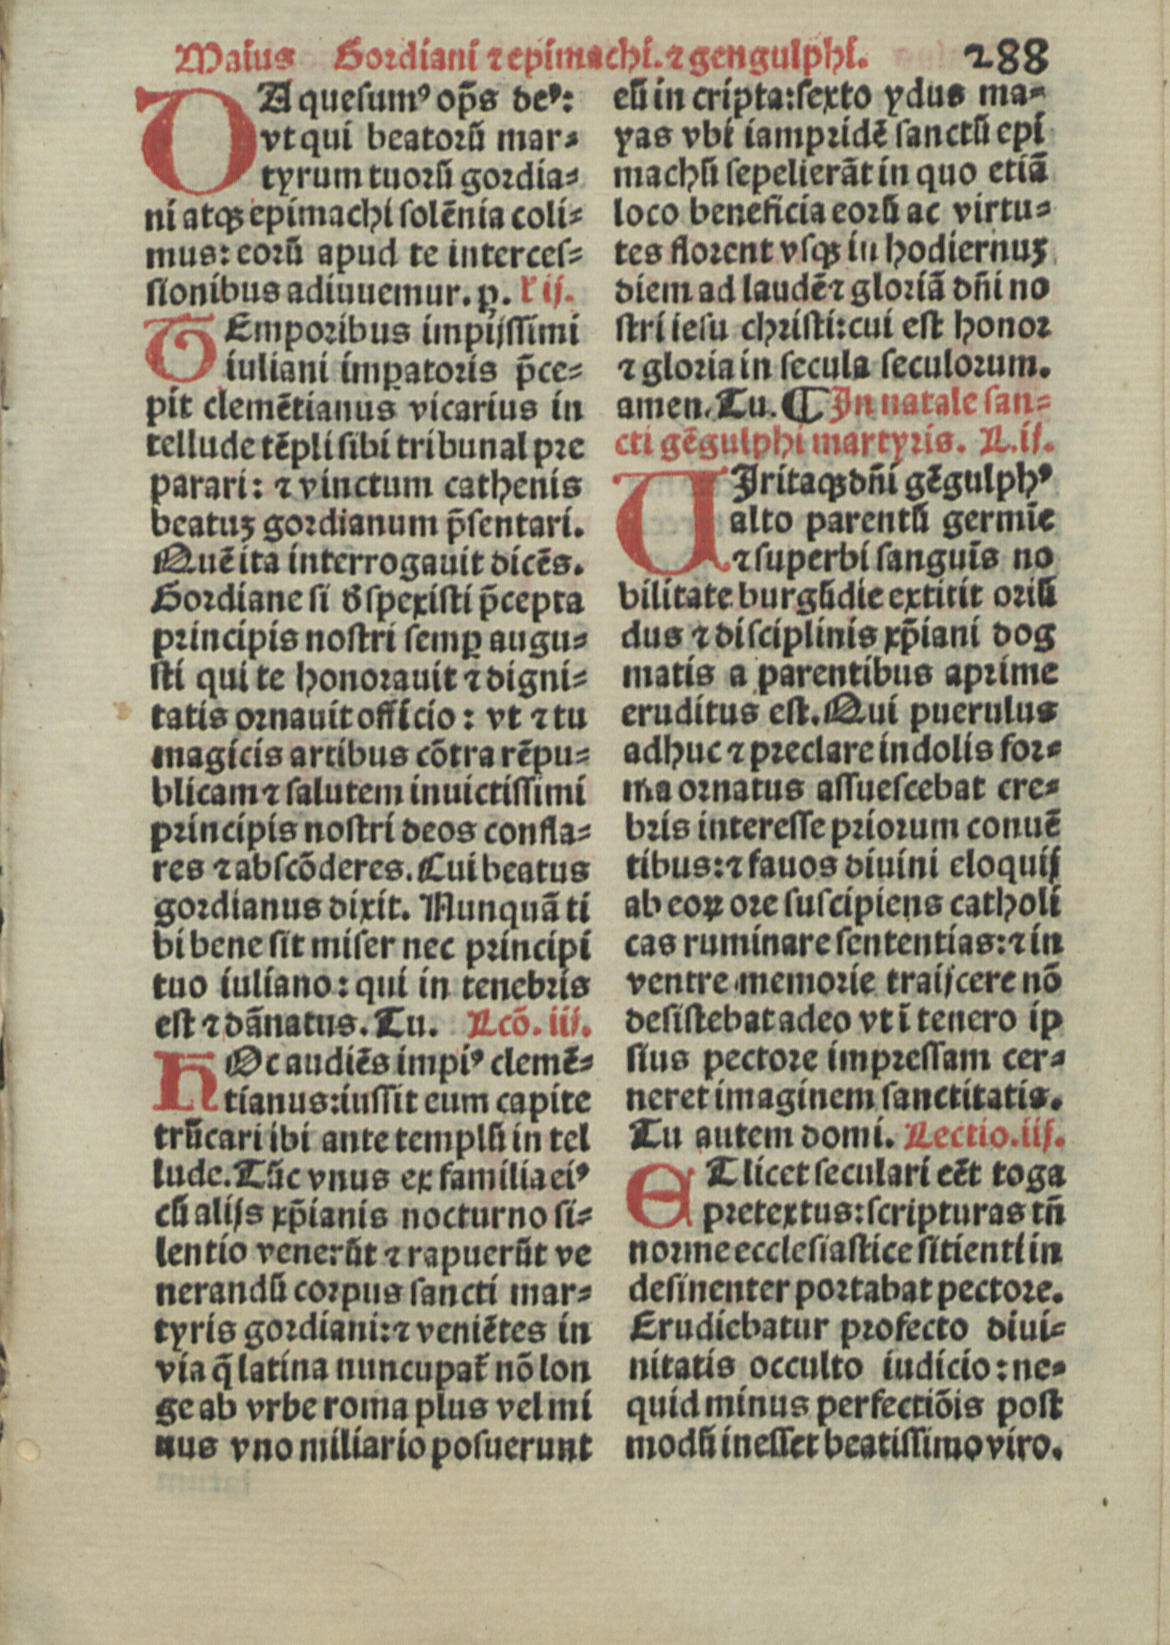 Maius Gordiani ⁊ epimachi. ⁊ gengulphi. 288
DA quesumꝰ op̄s deꝰ:
vt qui beatorū mar-
tyrum tuorū gordia-
ni atqꝫ epimachi solēnia coli-
mus: eorū apud te interces-
sionibus adiuuemur. p. ł ij.
TEmporibus impijssimi
iuliani impatoris p̄ce-
pit clemētianus vicarius in
tellude tēpli sibi tribunal pre
parari: ⁊ vinctum cathenis
beatuꝫ gordianum p̄sentari.
Quē ita interrogauit dicēs.
Gordiane si d̓spexisti p̄cepta
principis nostri semꝑ augu-
sti qui te honorauit ⁊ digni-
tatis ornauit officio: vt ⁊ tu
magicis artibus cōtra rēpu-
blicam ⁊ salutem inuictissimi
principis nostri deos confla-
res ⁊ abscōderes. Cui beatus
gordianus dixit. Nunquā ti
bi bene sit miser nec principi
tuo iuliano: qui in tenebris
est ⁊ dānatus. Tu. Lcō. iij.
HOc audiēs impiꝰ clemē-
tianus: iussit eum capite
trūcari ibi ante templū in tel
lude. Tūc vnus ex familia eiꝰ
cū alijs xp̄ianis nocturno si-
lentio venerūt ⁊ rapuerūt ve
nerandū corpus sancti mar-
tyris gordiani: ⁊ veniētes in
via q̄ latina nuncupat̄ nō lon
ge ab vrbe roma plus vel mi
nus vno miliario posuerunt
eū in cripta: sexto ydus ma-
yas vbi iampridē sanctū epi
machū sepelierāt in quo etiā
loco beneficia eorū ac virtu-
tes florent vsqꝫ in hodiernuꝫ
diem ad laudē ⁊ gloriā dn̄i no
stri iesu christi: cui est honor
⁊ gloria in secula seculorum.
amen. Tu. ¶ In natale san-
cti gēgulphi martyris. L. ij.
VIr itaqꝫ dn̄i gēgulphꝰ
alto parentū germīe
⁊ superbi sanguīs no
bilitate burgūdie extitit oriū
dus ⁊ disciplinis xp̄iani dog
matis a parentibus aprime
eruditus est. Qui puerulus
adhuc ⁊ preclare indolis for-
ma ornatus assuescebat cre-
bris interesse priorum conuē
tibus: ⁊ fauos diuini eloquij
ab eoꝝ ore suscipiens catholi
cas ruminare sententias: ⁊ in
ventre memorie traijcere nō
desistebat adeo vt ī tenero ip
sius pectore impressam cer-
neret imaginem sanctitatis.
Tu autem domi. Lectio. iij.
ET licet seculari eēt toga
pretextus: scripturas tn̄
norme ecclesiastice sitienti in
desinenter portabat pectore.
Erudiebatur profecto diui-
nitatis occulto iudicio: ne-
quid minus perfectiōis post
modū inesset beatissimo viro.